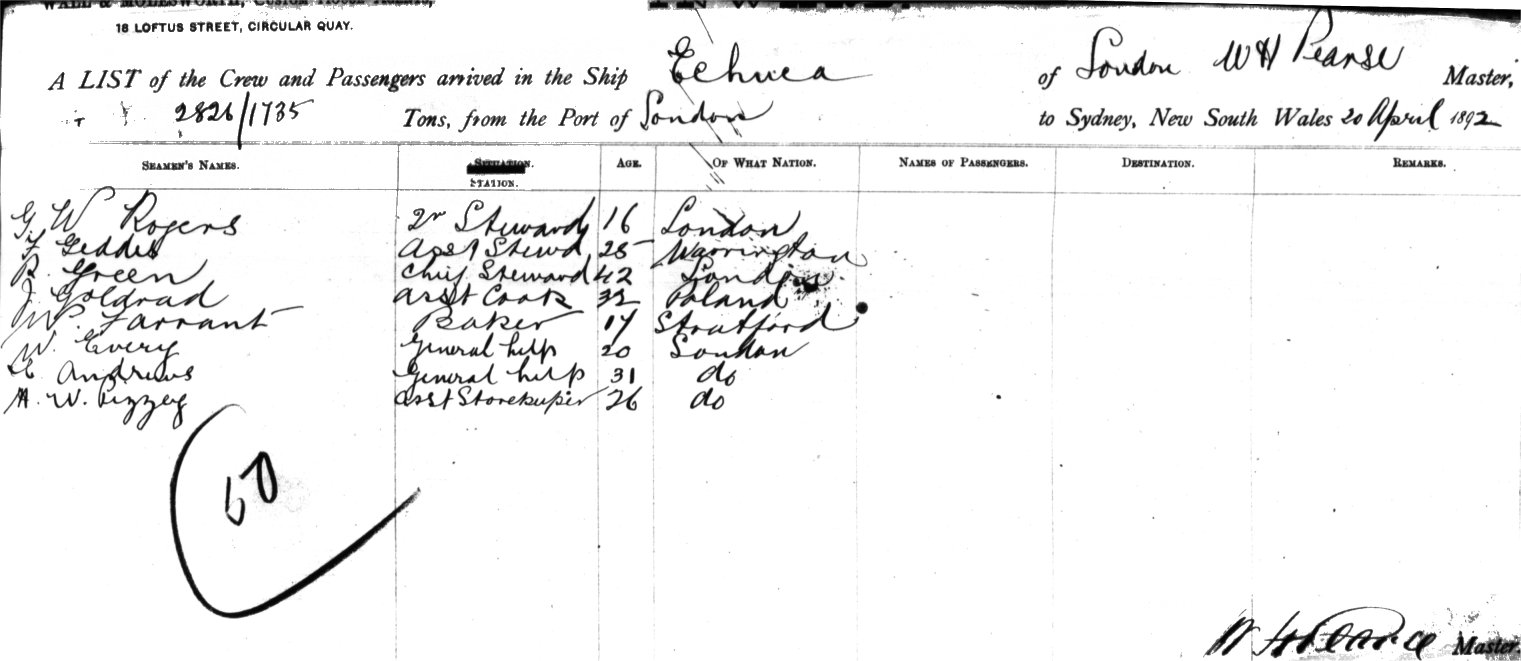 WALL & MOLESWORTH, CUSTOM HOUSE AGENTS,
18 LOFTUS STREET, CIRCULAR QUAY.
A LIST of the Crew and Passengers arrived in the Ship Echuca of London W H Pearse Master,
2826/1735 Tons, from the Port of London to Sydney, New South Wales 20 April 1892
SEAMEN'S NAMES. STATION. AGE. OF WHAT NATION. NAMES OF PASSENGERS. DESTINATION. REMARKS.
G W Rogers 2r Steward 16 London
F Geddis asst Stewd 25 Warrington
B. Green Chief Steward 42 London
J Goldrad asst Cook 32 Poland
W. Farrant Baker 17 Stratford
W. Every General help 20 London
Andrews General help 31 do
H. W. Pizzey asst Storekeeper 26 do
60
W H Pearse Master